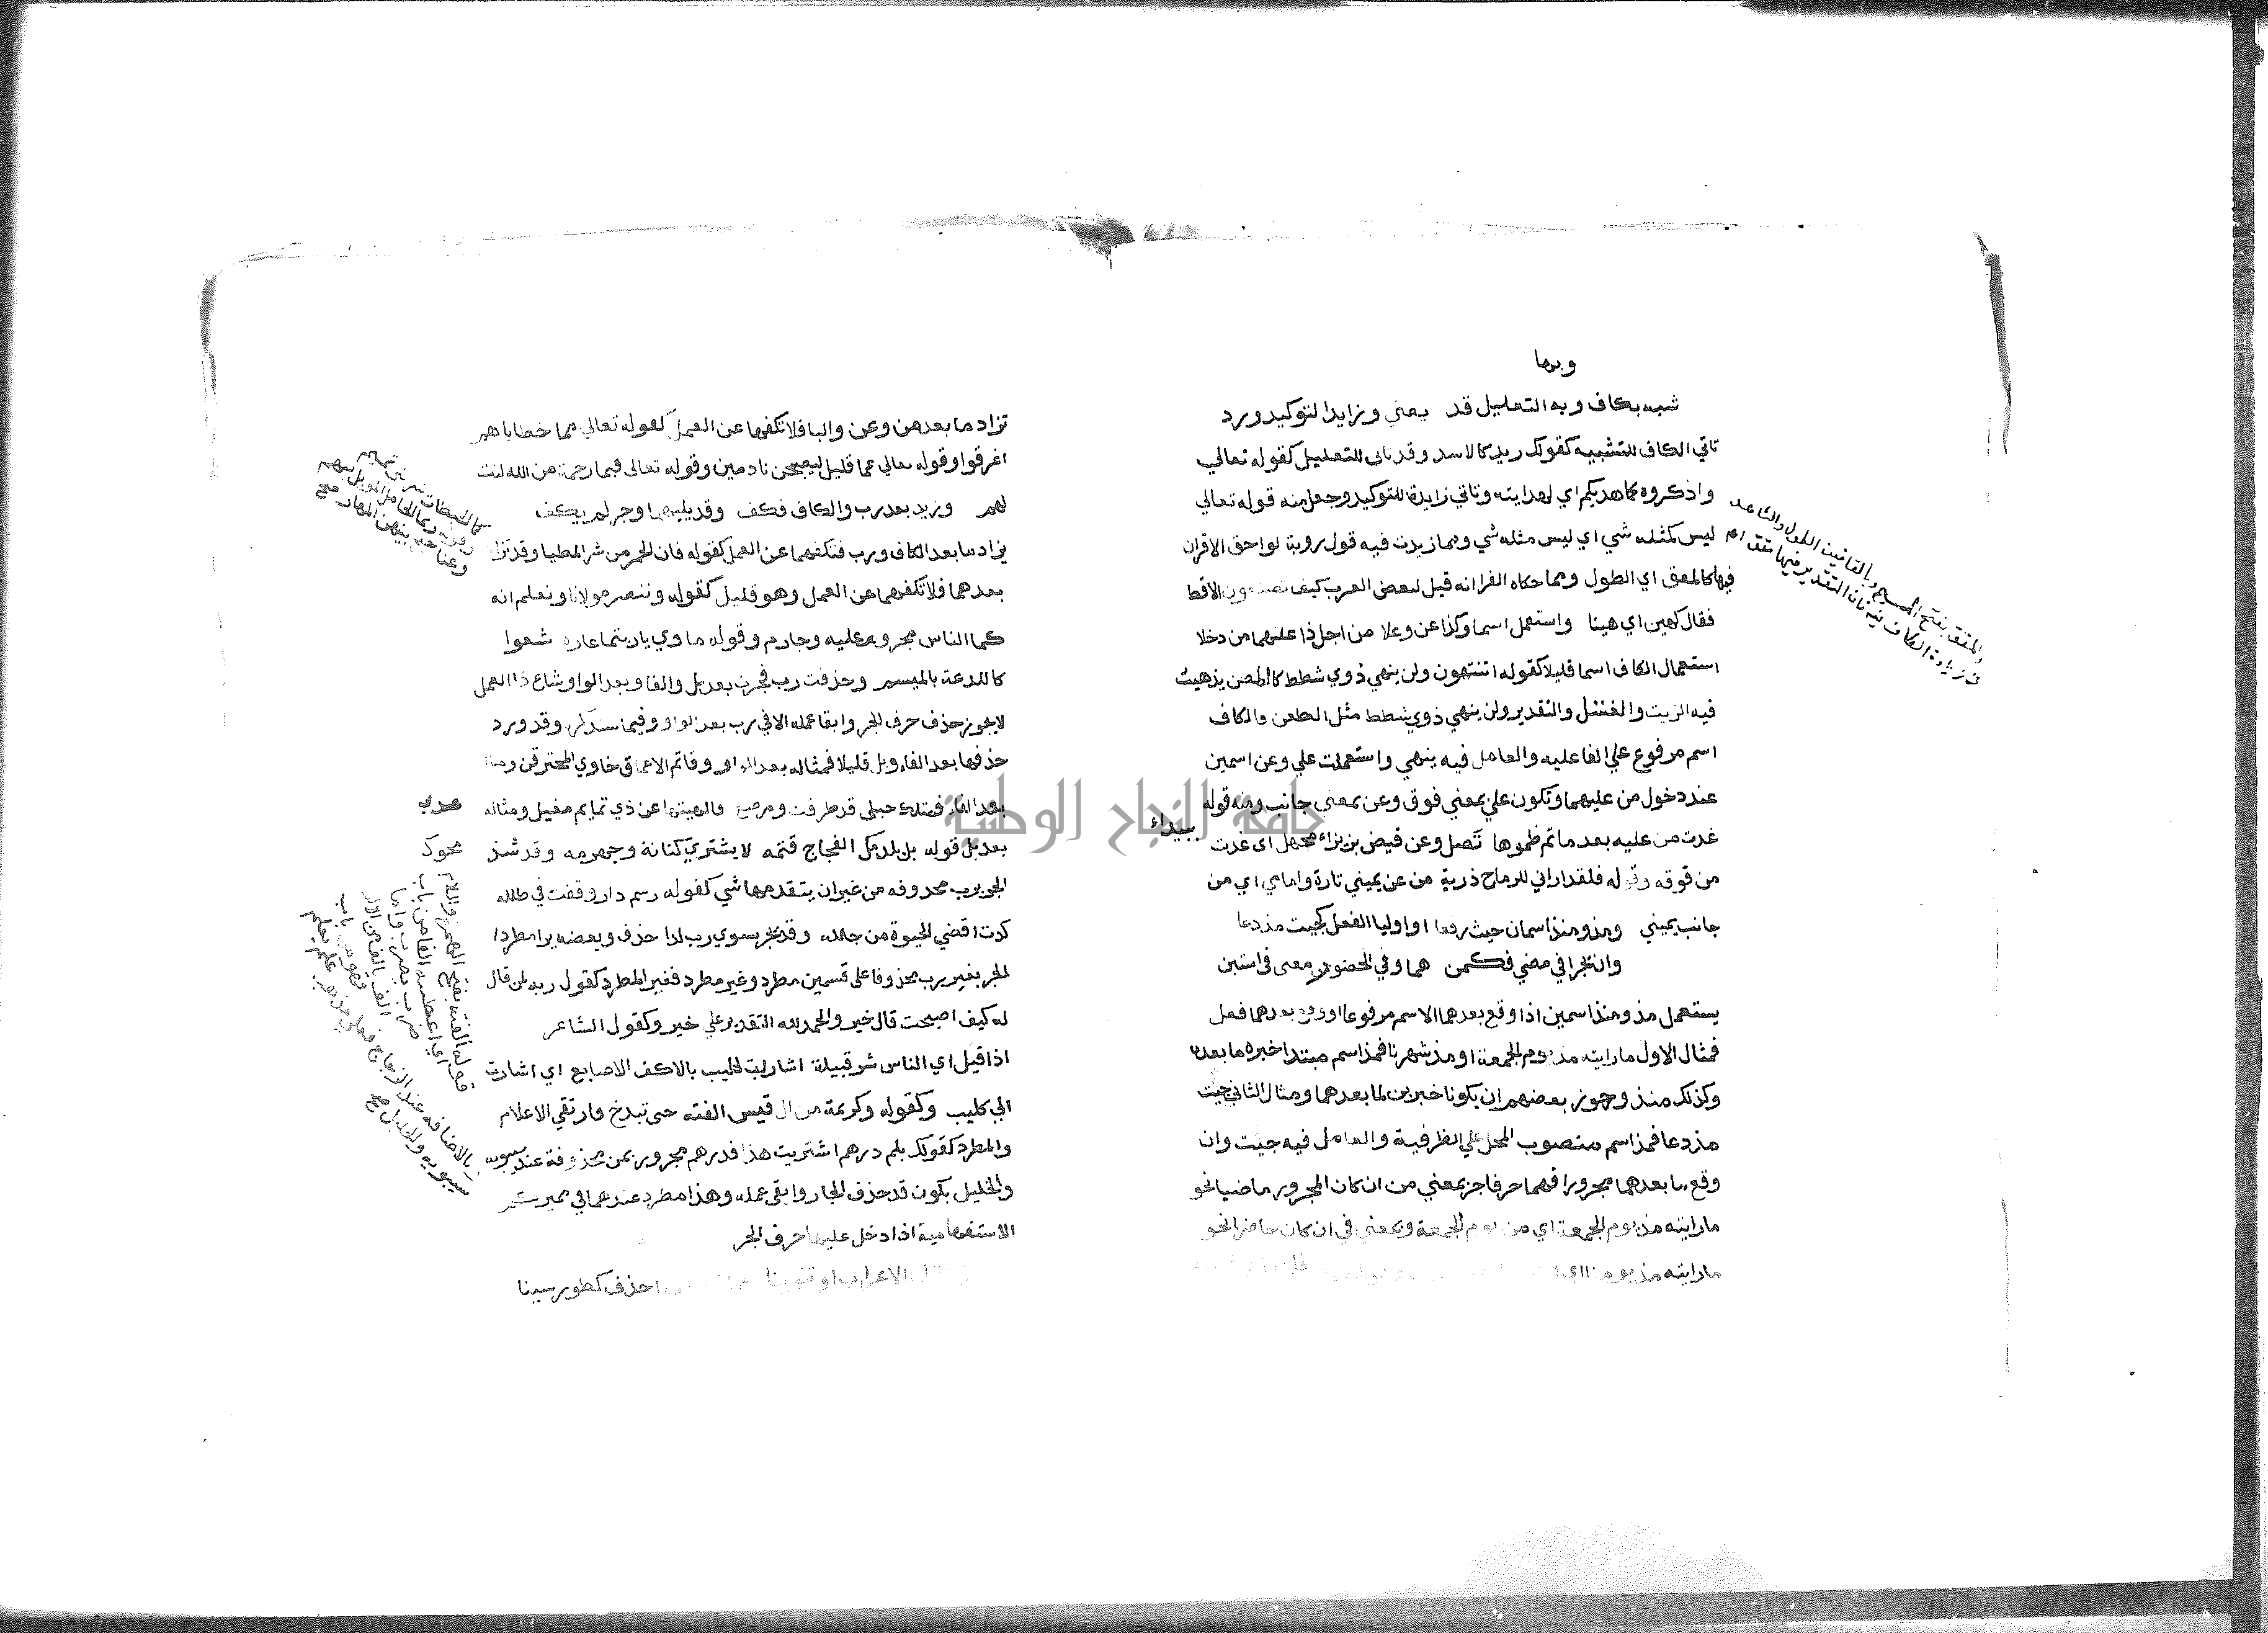 وبها
شبه بكاف وبه التعليل قد يعني وزايدا لتوكيد ورد
تاتي الكاف للتشبيه كقولك زيد كالاسد وقد تاتي للتعليل كقوله تعالي
واذكروه كما هديكم اي لهدايته وتاتي زايدة للتوكيد وجعل منه قوله تعالي
ليس كمثله شي اي ليس مثله شي ومما زيدت فيه قول روبة لواحق الاقران
فيها كالمقق اي الطول ومما حكاه الفرا انه قيل لبعض العرب كيف تصنعون الاقط
فقال كهين اي هينا واستعمل اسما وكذا عن وعلا من اجل ذا عليهما من دخلا
استعمال الكاف اسما قليلا كقوله اتنتهون ولن ينهي ذوي شطط كالطعن يذهب
فيه الزيت والفتل والتقدير ولن ينهي ذوي شطط مثل الطعن فالكاف
اسم مرفوع علي الفاعليه والعامل فيه ينهي واستعملت علي وعن اسمين
عند دخول من عليهما وتكون علي بمعني فوق وعن بمعني جانب ومنه قوله
غدت من عليه بعد ما تم ظموها تصل وعن قيض بزيزاء مجهل اي غدت
ببيداء
من فوقه وقوله فلقد اراني للرماح ذرية من عن يميني تارة وامامي اي من
جانب يميني ومذ ومنذ اسمان حيث رفعا او اوليا الفعل كجيت مذ دعا
وان يجرا في مضي فكمن هما وفي الحضور معني في استبن
يستعمل مذ ومنذ اسمين اذا وقع بعدهما الاسم مرفوعا او وقع بعدهما فعل
فمثال الاول ما رايته مذ يوم الجمعة او مذ شهرنا فمذ اسم مبتدا خبره ما بعده
وكذلك منذ وجوز بعضهم ان يكونا خبرين لما بعدهما ومثال الثاني جيت
مذ دعا فمذ اسم منصوب المحل علي الظرفية والعامل فيه جيت وان
وقع ما بعدهما مجرورا فهما حرفا جر بمعني من ان كان المجرور ماضيا نحو
ما رايته مذ يوم الجمعة اي من يوم الجمعة وبمعني في ان كان حاضرا نحو
ما رايته مذ يومنا اي
والمقق بفتح الميم وبالقافين الطول والشاهد
في زيادة الكاف فيه فان التقدير فيها مقق اه
تزاد ما بعد من وعن والبا فلا تكفها عن العمل كقوله تعالي مما خطاياهم
اغرقوا وقوله تعالي عما قليل ليصبحن نادمين وقوله تعالي فبما رحمة من الله لنت
لهم وزيد بعد رب والكاف فكف وقد يليهما وجر لم يكف
يزاد ما بعد الكاف ورب فتكفهما عن العمل كقوله فان الحمر من شر المطيا وقد تزاد
بعدهما فلا تكفهما عن العمل وهو قليل كقوله وننصر مولانا ونعلم انه
كما الناس مجروم عليه وجارم وقوله ماوي ياربتما غارة شعوا
كاللدعة بالميسم وحذفت رب فجرت بعد بل والفا وبعد الواو شاع ذا العمل
لا يجوز حذف حرف الجر وابقا عمله الا في رب بعد الواو وفيما سنذكره وقد ورد
حذفها بعد الفاء وبل قليلا فمثاله بعد الواو وقاتم الاعماق خاوي المخترقن ومثاله
بعد الفاء فمثلك حبلي قد طرقت ومرضع فالهيتها عن ذي تمايم مغيل ومثاله
بعد بل قوله بل بلد مل الفجاج قتمه لا يشتري كتانة وجهرمه وقد شذ
محول
الجر برب محذوفه من غير ان يتقدمها شي كقوله رسم دار وقفت في طلله
كدت اقضي الحيوة من جلله وقد يجر بسوي رب لدا حذف وبعضه يرا مطردا
الجر بغير رب محذوفا علي قسمين مطرد وغير مطرد فغير المطرد كقول روبه لمن قال
له كيف اصبحت قال خير والحمد لله التقدير علي خير وكقول الشاعر
اذا قيل اي الناس شر قبيلة اشارت كليب بالاكف الاصابع اي اشارت
الي كليب وكقوله وكريمة من ال قيس الفته حتى تبدخ فارتقي الاعلام
والمطرد كقولك بلم درهم اشتريت هذا فدرهم مجرور بمن محذوفة عند سيبويه
والخليل يكون قد حذف الجار وابقي عمله وهذا مطرد عندهما في مميز كم
الاستفهامية اذا دخل عليها حرف الجر
الاعراب او تنوينا احذف كطور سينا
قوله الفته بفتح الهمزة واللام
بالاضافه عند الزجاج
سيبويه والخليل